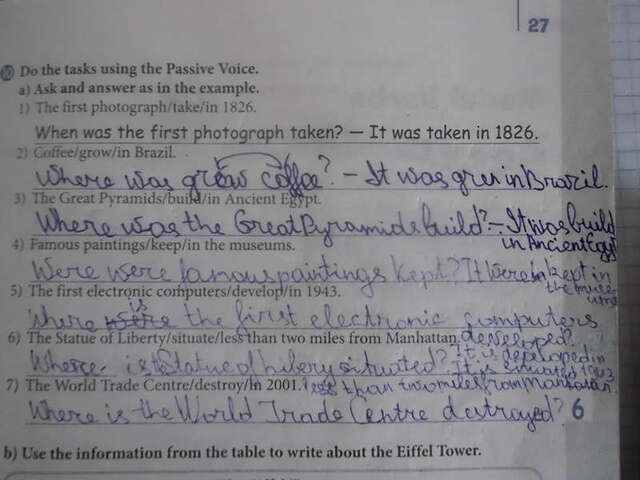 27
10 Do the tasks using the Passive Voice.
a) Ask and answer as in the example.
1) The first photograph/take/in 1826.
When was the first photograph taken? — It was taken in 1826.
2) Coffee/grow/in Brazil.
Where was grow coffee? - It was in Brazil.
3) The Great Pyramids/build/in Ancient Egypt.
Where was the Great Pyramids build? - It was build
in Ancient Egyp
4) Famous paintings/keep/in the museums.
Were were famous paintings kept? It were kept in
the museums
5) The first electronic computers/develop/in 1943.
Where is the first electronic computers
developed?
6) The Statue of Liberty/situate/less than two miles from Manhattan.
It is developed in
1943
Where is Statue of situated? It is situated
less than two miles from Manhatan.
7) The World Trade Centre/destroy/in 2001.
Where is the World Trade Centre destrayed? 6
b) Use the information from the table to write about the Eiffel Tower.